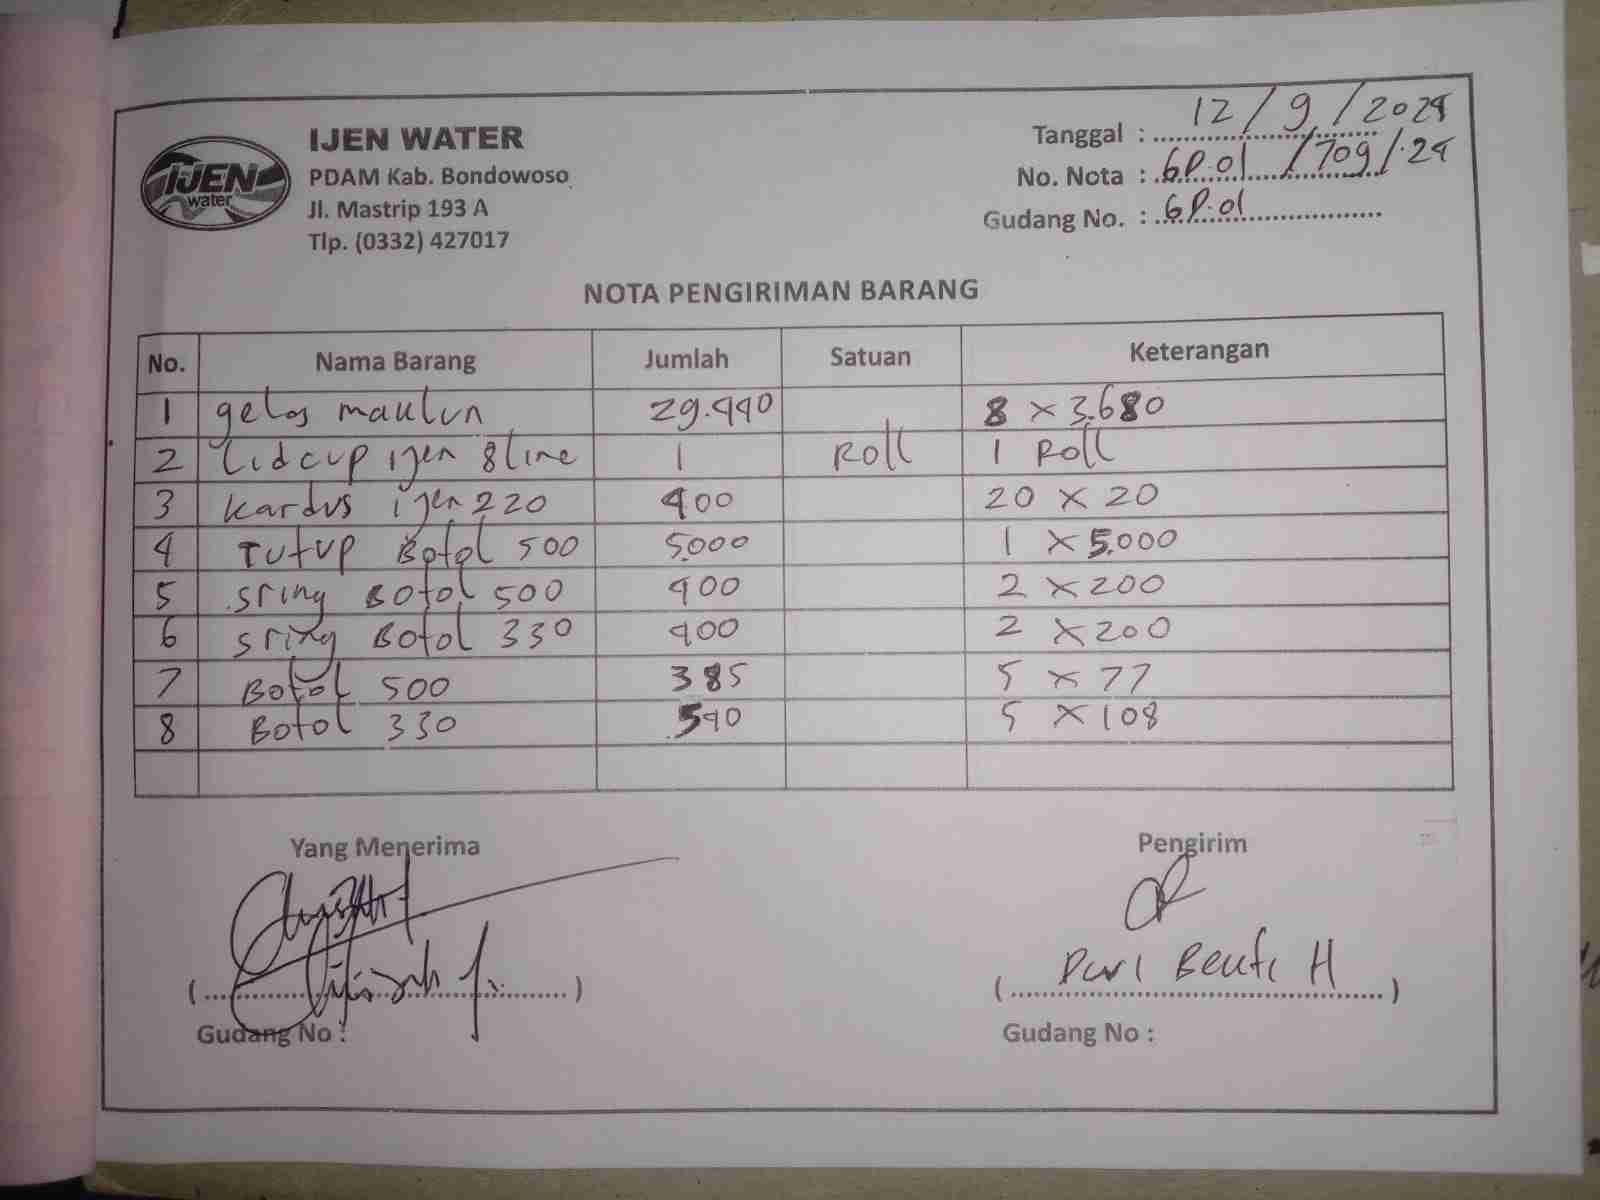 IJEN WATER
PDAM Kab. Bondowoso
Jl. Mastrip 193 A
Tlp. (0332) 427017
IJEN
water
Tanggal : 12/9/2024
No. Nota : GP.01 /709/.24
Gudang No. : GP.01
NOTA PENGIRIMAN BARANG
No. Nama Barang Jumlah Satuan Keterangan
1 gelas maulun 29.440 8 x 3.680
2 Lidcup ijen 8line 1 Roll 1 Roll
3 kardus ijen 220 400 20 x 20
4 Tutup Botol 500 5.000 1 x 5.000
5 sring Botol 500 400 2 x 200
6 sring Botol 330 400 2 x 200
7 Botol 500 385 5 x 77
8 Botol 330 540 5 x 108
Yang Menerima Pengirim
( ) ( H )
Gudang No : Gudang No :